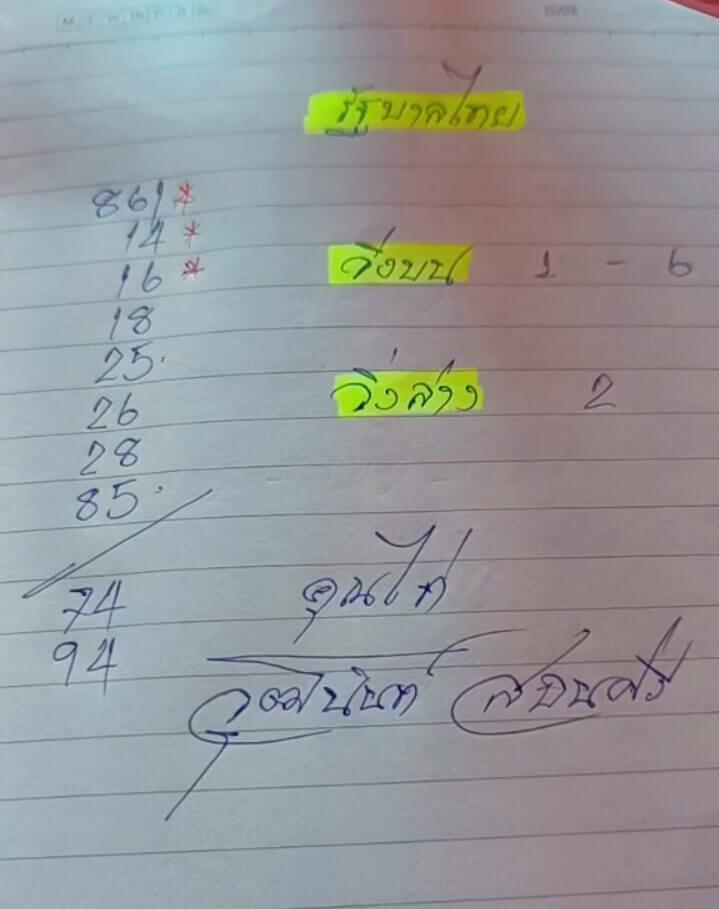 รัฐบาลไทย
861*
14 *
16 *
วิ่งบน 1 - 6
18
25.
วิ่งล่าง 2
26
28
85.
74
คุณไก่
94
วุฒินันท์